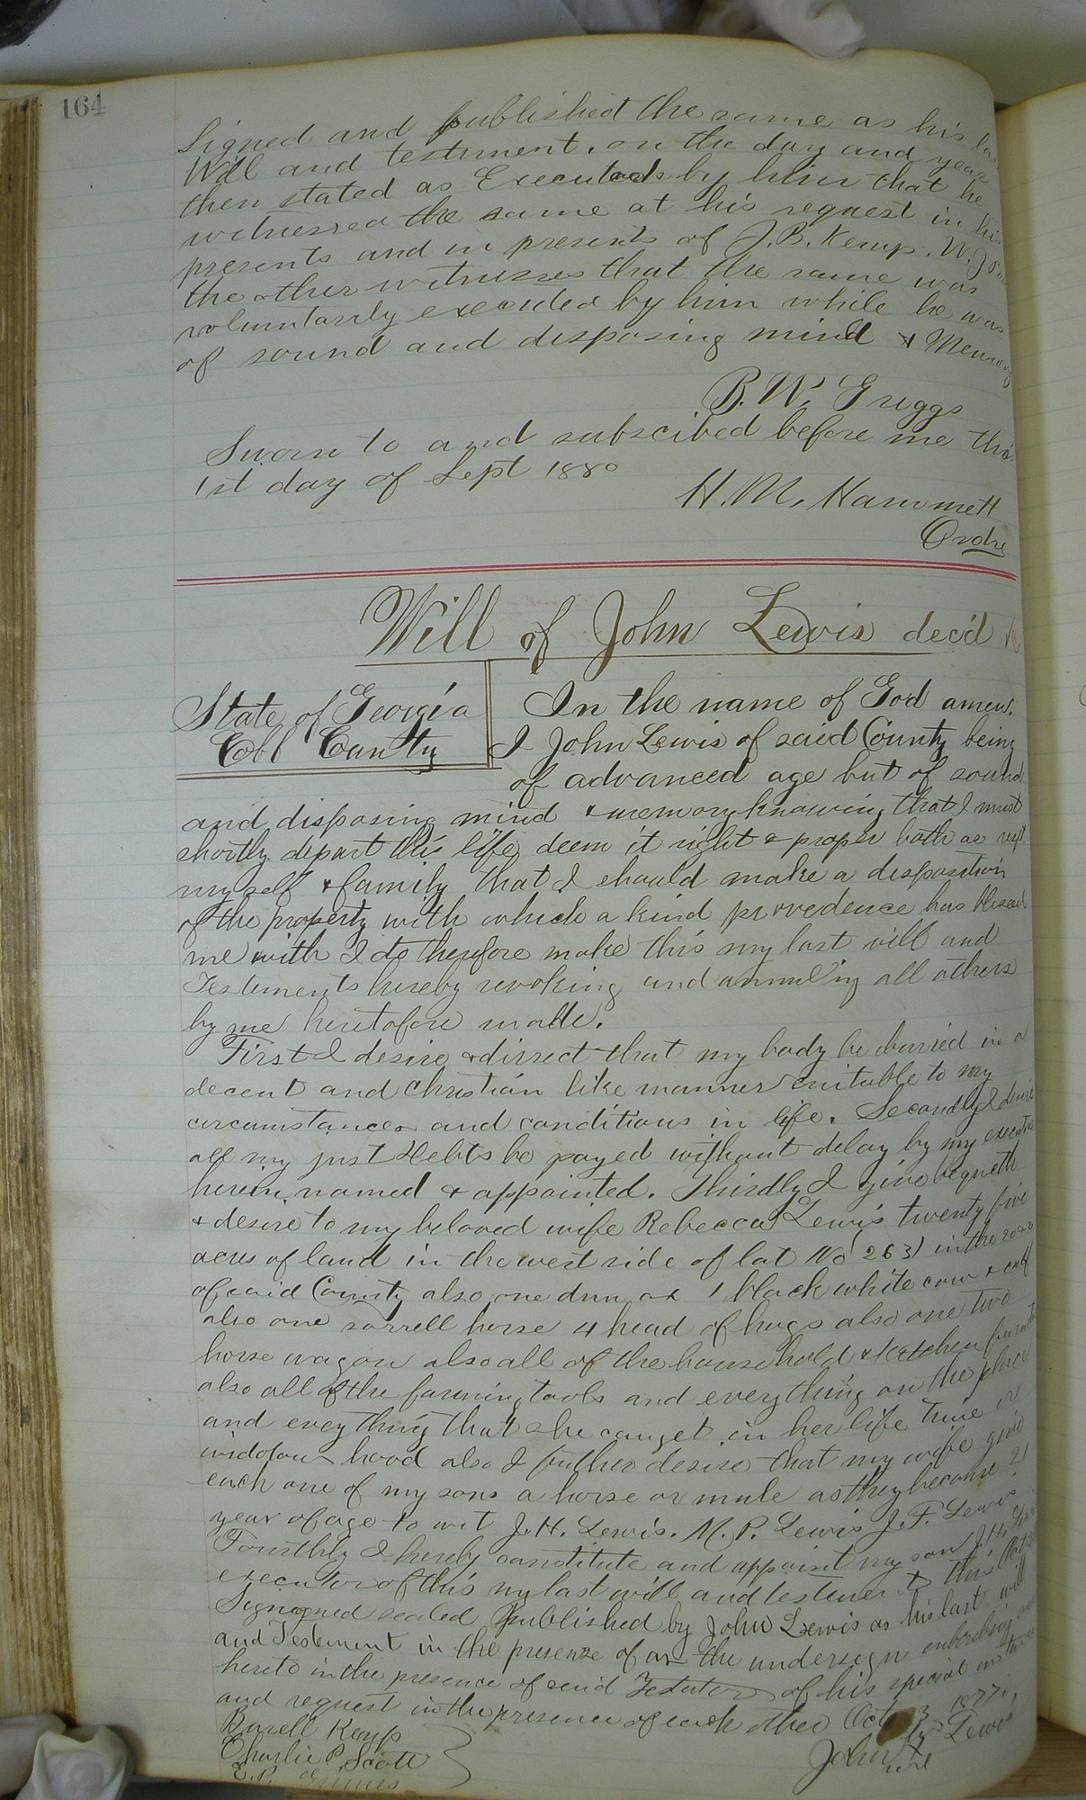 164
Signed and published the same as his
Will and testiment. on the day and year
then stated as Executed by him that he
witnessed the same at his request in his
presents and in presents of J.B. Kemp. W.
the other witnesses that the same was
voluntarily executed by him while he was
of sound and disposing mind & Memory
B. W. Griggs
Sworn to and subscibed before me this
1st day of Sept 1880
H. M. Hammett
Ordry
Will of John Lewis dec'd
State of Georgia
Cobb County
In the name of God amen.
I John Lewis of said County being
of advanced age but of sound
and disposing mind & memory knowing that I must
shortly depart this life deem it right & proper both as
myself & family that I should make a disposition
of the property with which a kind provedence has blessed
me with I do therefore make this my last will and
Testements hereby revoking and annuling all others
by me heretofore made.
First I desire & dirrect that my body be burried in a
decent and christian like manner suitable to my
circumstances and conditions in life. Secondly I desire
all my just Debts be payed without delay by my executor
herein named & appointed. Thirdly I give bequeth
& desire to my beloved wife Rebecca Lewis twenty five
acres of land in the west side of lot No 263 in the
of said County also one dun ox 1 black white cow & calf
also one sorrell horse 4 head of hogs also one two
horse wagon also all of the household & ketchen
also all of the farming tools and everything on the place
and eveything that she can get in her life time or
widdow hood also I futher desire that my wife give
each one of my sons a horse or mule as they become 21
year of age to wit J. H. Lewis. M. P. Lewis J. F. Lewis
Fourthly I hereby constitute and appoint my son J. H.
executor of this my last will and testement this
Signgned sealed published by John Lewis as his last will
and Testement in the presense of us the undersign
hereto in the presence of said Testator of his special
and request in the presence of each other Oct 3 1877.
Barell Kemp
Charlie P. Scott
E. R.
John Lewis